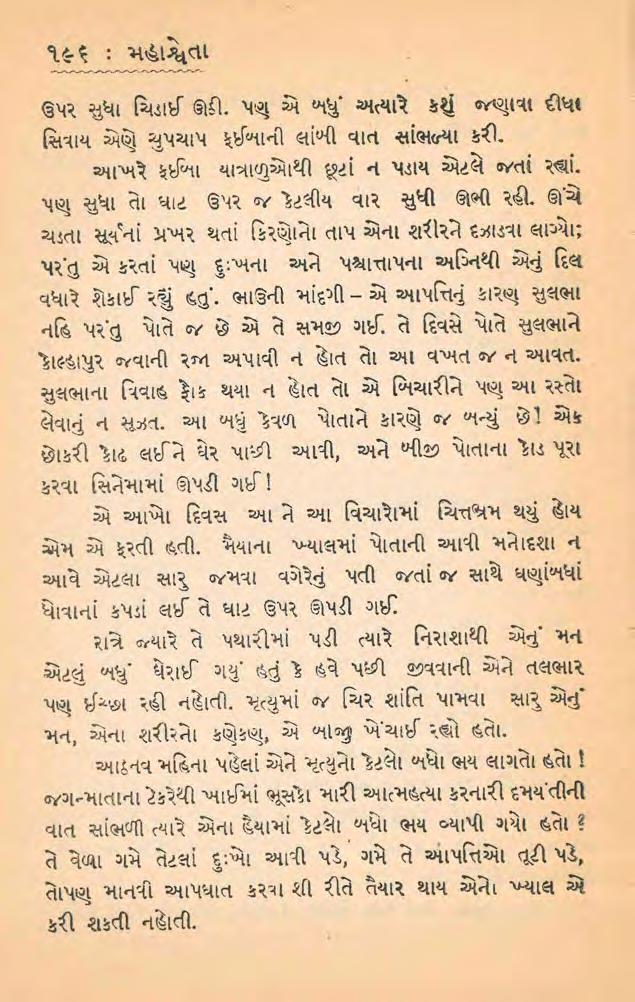 ૧૯૬ : મહાશ્વેતા
ઉપર સુધા ચિડાઈ ઊઠી. પણ એ બધું અત્યારે કશું જણાવા દીધા
સિવાય એણે ચુપચાપ ફઈબાની લાંબી વાત સાંભળ્યા કરી.
આખરે ફઈબા યાત્રાળુઓથી છૂટાં ન પડાય એટલે જતાં રહ્યાં.
પણ સુધા તો ઘાટ ઉપર જ કેટલીય વાર સુધી ઊભી રહી. ઊંચે
ચડતા સૂર્યનાં પ્રખર થતાં કિરણોનો તાપ એના શરીરને દઝાડવા લાગ્યો;
પરંતુ એ કરતાં પણ દુઃખના અને પશ્ચાત્તાપના અગ્નિથી એનું દિલ
વધારે શેકાઈ રહ્યું હતું. ભાઉની માંદગી – એ આપત્તિનું કારણ સુલભા
નહિ પરંતુ પોતે જ છે એ તે સમજી ગઈ. તે દિવસે પોતે સુલભાને
કોલ્હાપુર જવાની રજા અપાવી ન હોત તો આ વખત જ ન આવત.
સુલભાના વિવાહ ફોક થયા ન હોત તો એ બિચારીને પણ આ રસ્તો
લેવાનું ન સૂઝત. આ બધું કેવળ પોતાને કારણે જ બન્યું છે! એક
છોકરી કોઢ લઈને ઘેર પાછી આવી, અને બીજી પોતાના કોડ પૂરા
કરવા સિનેમામાં ઊપડી ગઈ!
એ આખો દિવસ આ ને આ વિચારોમાં ચિત્તભ્રમ થયું હોય
એમ એ ફરતી હતી. મૈયાના ખ્યાલમાં પોતાની આવી મનોદશા ન
આવે એટલા સારુ જમવા વગેરેનું પતી જતાં જ સાથે ઘણાંબધાં
ધોવાનાં કપડાં લઈ તે ઘાટ ઉપર ઊપડી ગઈ.
રાત્રે જ્યારે તે પથારીમાં પડી ત્યારે નિરાશાથી એનું મન
એટલું બધું ઘેરાઈ ગયું હતું કે હવે પછી જીવવાની એને તલભાર
પણ ઈચ્છા રહી નહોતી. મૃત્યુમાં જ ચિર શાંતિ પામવા સારુ એનું
મન, એના શરીરનો કણેકણ, એ બાજુ ખેંચાઈ રહ્યો હતો.
આઠનવ મહિના પહેલાં એને મૃત્યુનો કેટલો બધો ભય લાગતો હતો!
જગન્માતાના ટેકરેથી ખાઈમાં ભૂસકો મારી આત્મહત્યા કરનારી દમયંતીની
વાત સાંભળી ત્યારે એના હૈયામાં કેટલો બધો ભય વ્યાપી ગયો હતો?
તે વેળા ગમે તેટલાં દુઃખો આવી પડે, ગમે તે આપત્તિઓ તૂટી પડે,
તોપણ માનવી આપઘાત કરવા શી રીતે તૈયાર થાય એનો ખ્યાલ એ
કરી શકતી નહોતી.